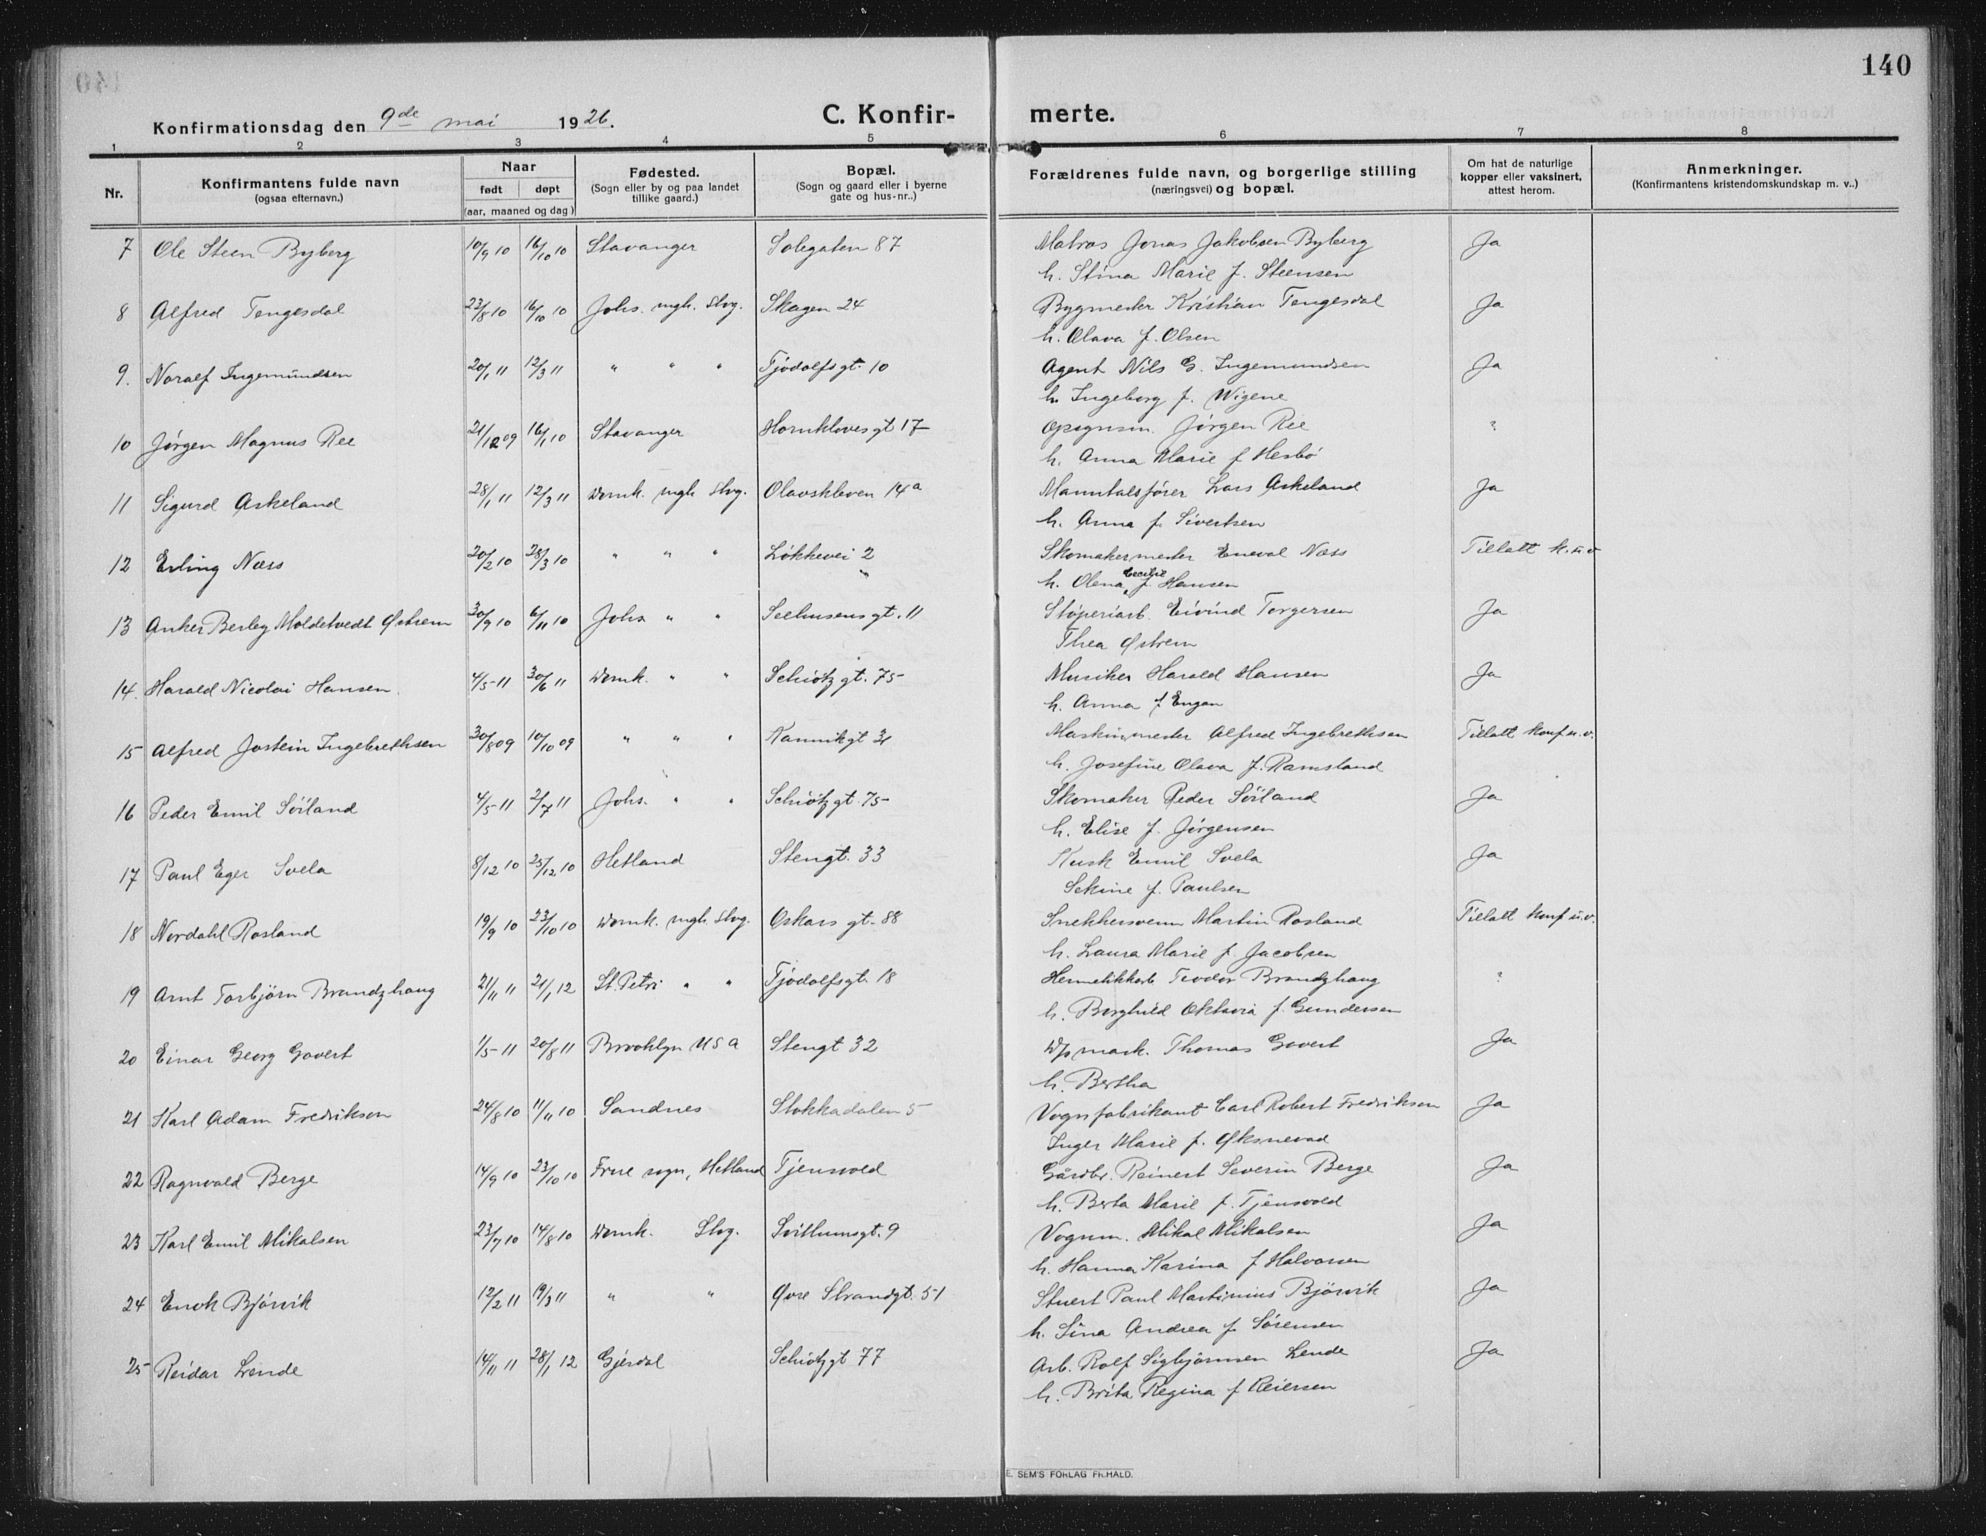 140
Konfirmationsdag den 9de mai 1926. C. Konfirmerte.
1 2 3 4 5 6 7 8
Nr. Konfirmantens fulde navn (ogsaa efternavn.) Naar født døpt (aar, maaned og dag) Fødested. (Sogn eller by og paa landet tillike gaard.) Bopæl. (Sogn og gaard eller i byerne gate og hus-nr..) Forældrenes fulde navn, og borgerlige stilling (næringsvei) og bopæl. Om hat de naturlige kopper eller vaksinert, attest herom. Anmerkninger. (Konfirmantens kristendomskundskap m. v..)
7 Ole Steen Byberg 10/9 10 16/10 10 Stavanger Solegaten 87 Matros Jonas Jakobsen Byberg Ja
h. Stina Marie f. Steensen
8 Alfred Tengesdal 23/8 10 16/10 10 Johs. mgh. Stvg. Skagen 24 Bygmester Kristian Tengesdal Ja
h. Olava f. Olsen
9. Noralf Ingemundsen 20/1 11 12/3 11 " " " Tjodolfsgt. 10 Agent Nils G. Ingemundsen Ja
h. Ingeborg f. Wigene
10 Jørgen Magnus Ree 21/12 09 16/1 10 Stavanger Hornklovesgt 17 Opsynsm. Jørgen Ree ?
h. Anna Marie f Hesbø
11 Sigurd Askeland 28/1 11 12/3 11 Domk. mgh. Stvg. Olavskleven 14a Manntalsfører Lars Askeland Ja
h. Anna f. Sivertsen
12 Erling Næss 20/2 10 28/3 10 " " " Løkkevei 2 Skomakermester Eneval Næss Tillatt k. u. v
h. Olena Cecilie f. Hansen
13 Anker Berley Moldetvedt Østrem 30/9 10 6/11 10 Johs " " Seehusensgt. 11 Støperiarb. Eivind Torgersen Ja
Thea Østrem
14. Harald Nicolai Hansen. 4/5 11 30/6 11 Domk. " " Schiøtzgt. 75 Musiker Harald Hansen Ja
h. Anna f Engan
15 Alfred Jostein Ingebrethsen 30/8 09 10/10 09 " " " Kannikgt 31 Maskinmester Alfred Ingebrethsen Tillatt konf u. v.
h. Josefine Olava f. Ramsland
16 Peder Emil Söiland 4/5 11 2/7 11 Johs. " " Schiøtzgt. 75 Skomaker Peder Söiland Ja
h. Elise f. Jørgensen
17 Paul Eger Svela 8/12 10 25/12 10 Hetland Stengt. 33 Kusk Emil Svela Ja
Sekine f. Paulsen
18 Nordahl Rosland 19/9 10 23/10 10 Domk. mgh. Stvg. Oskars gt. 88 Snekkersvenn Martin Rosland Tillatt konf u. v.
h. Laura Marie f. Jacobsen
19 Arnt Torbjørn Brandzhaug 21/11 11 21/1 12 St. Petri " " Tjodolfsgt. 18 Hermetikkarb Teodor Brandzhaug ?
h. Borghild Oktavia f. Gundersen
20 Einar Georg Govert 1/5 11 20/8 11 Brooklyn USA Stengt 32 D/s mask. Thomas Govert Ja
h. Bertha
21 Karl Adam Fredriksen 24/8 10 11/11 10 Sandnes Stokkadalen 5 Vognfabrikant Carl Robert Fredriksen Ja
Inger Marie f. Øksnevad
22 Ragnvald Berge 14/9 10 23/10 10 Frue sogn, Hetland Tjensvold Gårdbr. Reinert Severin Berge Ja
h. Berta Marie f. Tjensvold
23 Karl Emil Mikalsen 23/7 10 14/8 10 Domk. Stvg. Svithunsgt. 9 Vognm. Mikal Mikalsen Ja
h. Hanna Karina f Halvorsen
24 Enok Bjørvik 12/2 11 19/3 11 " " Øvre Strandgt. 51 Stuert Paul Martinius Bjørvik Ja
h. Sina Andrea f. Sørensen
25 Reidar Lende 14/11 11 28/1 12 Gjesdal Schiøtzgt 77 Arb. Rolf Sigbjørnsen Lende Ja
h. Brita Regina f Reiersen
E. SEM'S FORLAG FR.HALD.